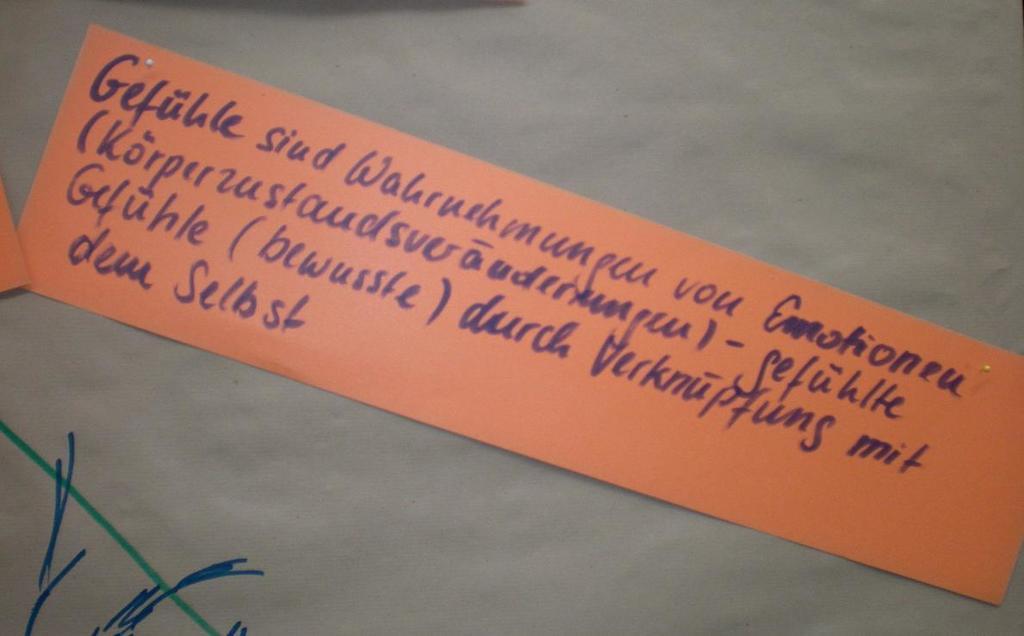 Gefühle sind Wahrnehmungen von Emotionen
(Körperzustandsveränderungen) - gefühlte
Gefühle (bewusste) durch Verknüpfung mit
dem Selbst